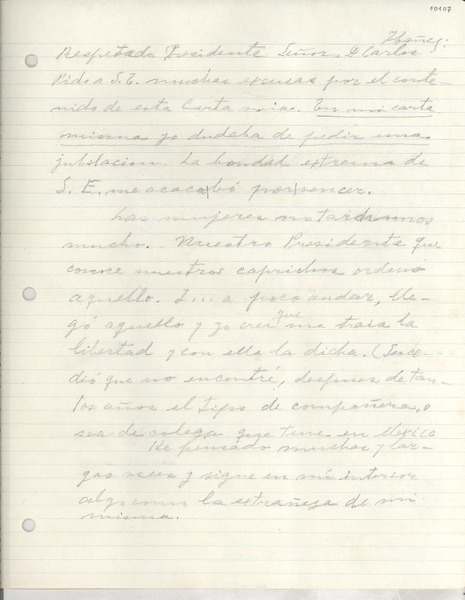 10107
Ibáñez:
Respetado Presidente Señor D Carlos
Pido a S. E. muchas excusas por el conte-
nido de esta Carta mia. En mi carta
misma yo dudaba de pedir una
jubilacion. La bondad extrema de
S. E. me acacabó por vencer.
Las mujeres no tardamos
mucho. Nuestro Presidente que
conoce nuestros caprichos ordenó
aquello. I... a poco andar, lle-
gó aquello y yo creí que me traia la
libertad y con ella la dicha. (Suce-
dió que no encontré, despues de tan-
tos años el tipo de compañera, o
sea de colega que tuve en Mexico
He pensado muchas y lar-
gas veces y sigue en mi interior
algo como la extrañeza de mi
misma.